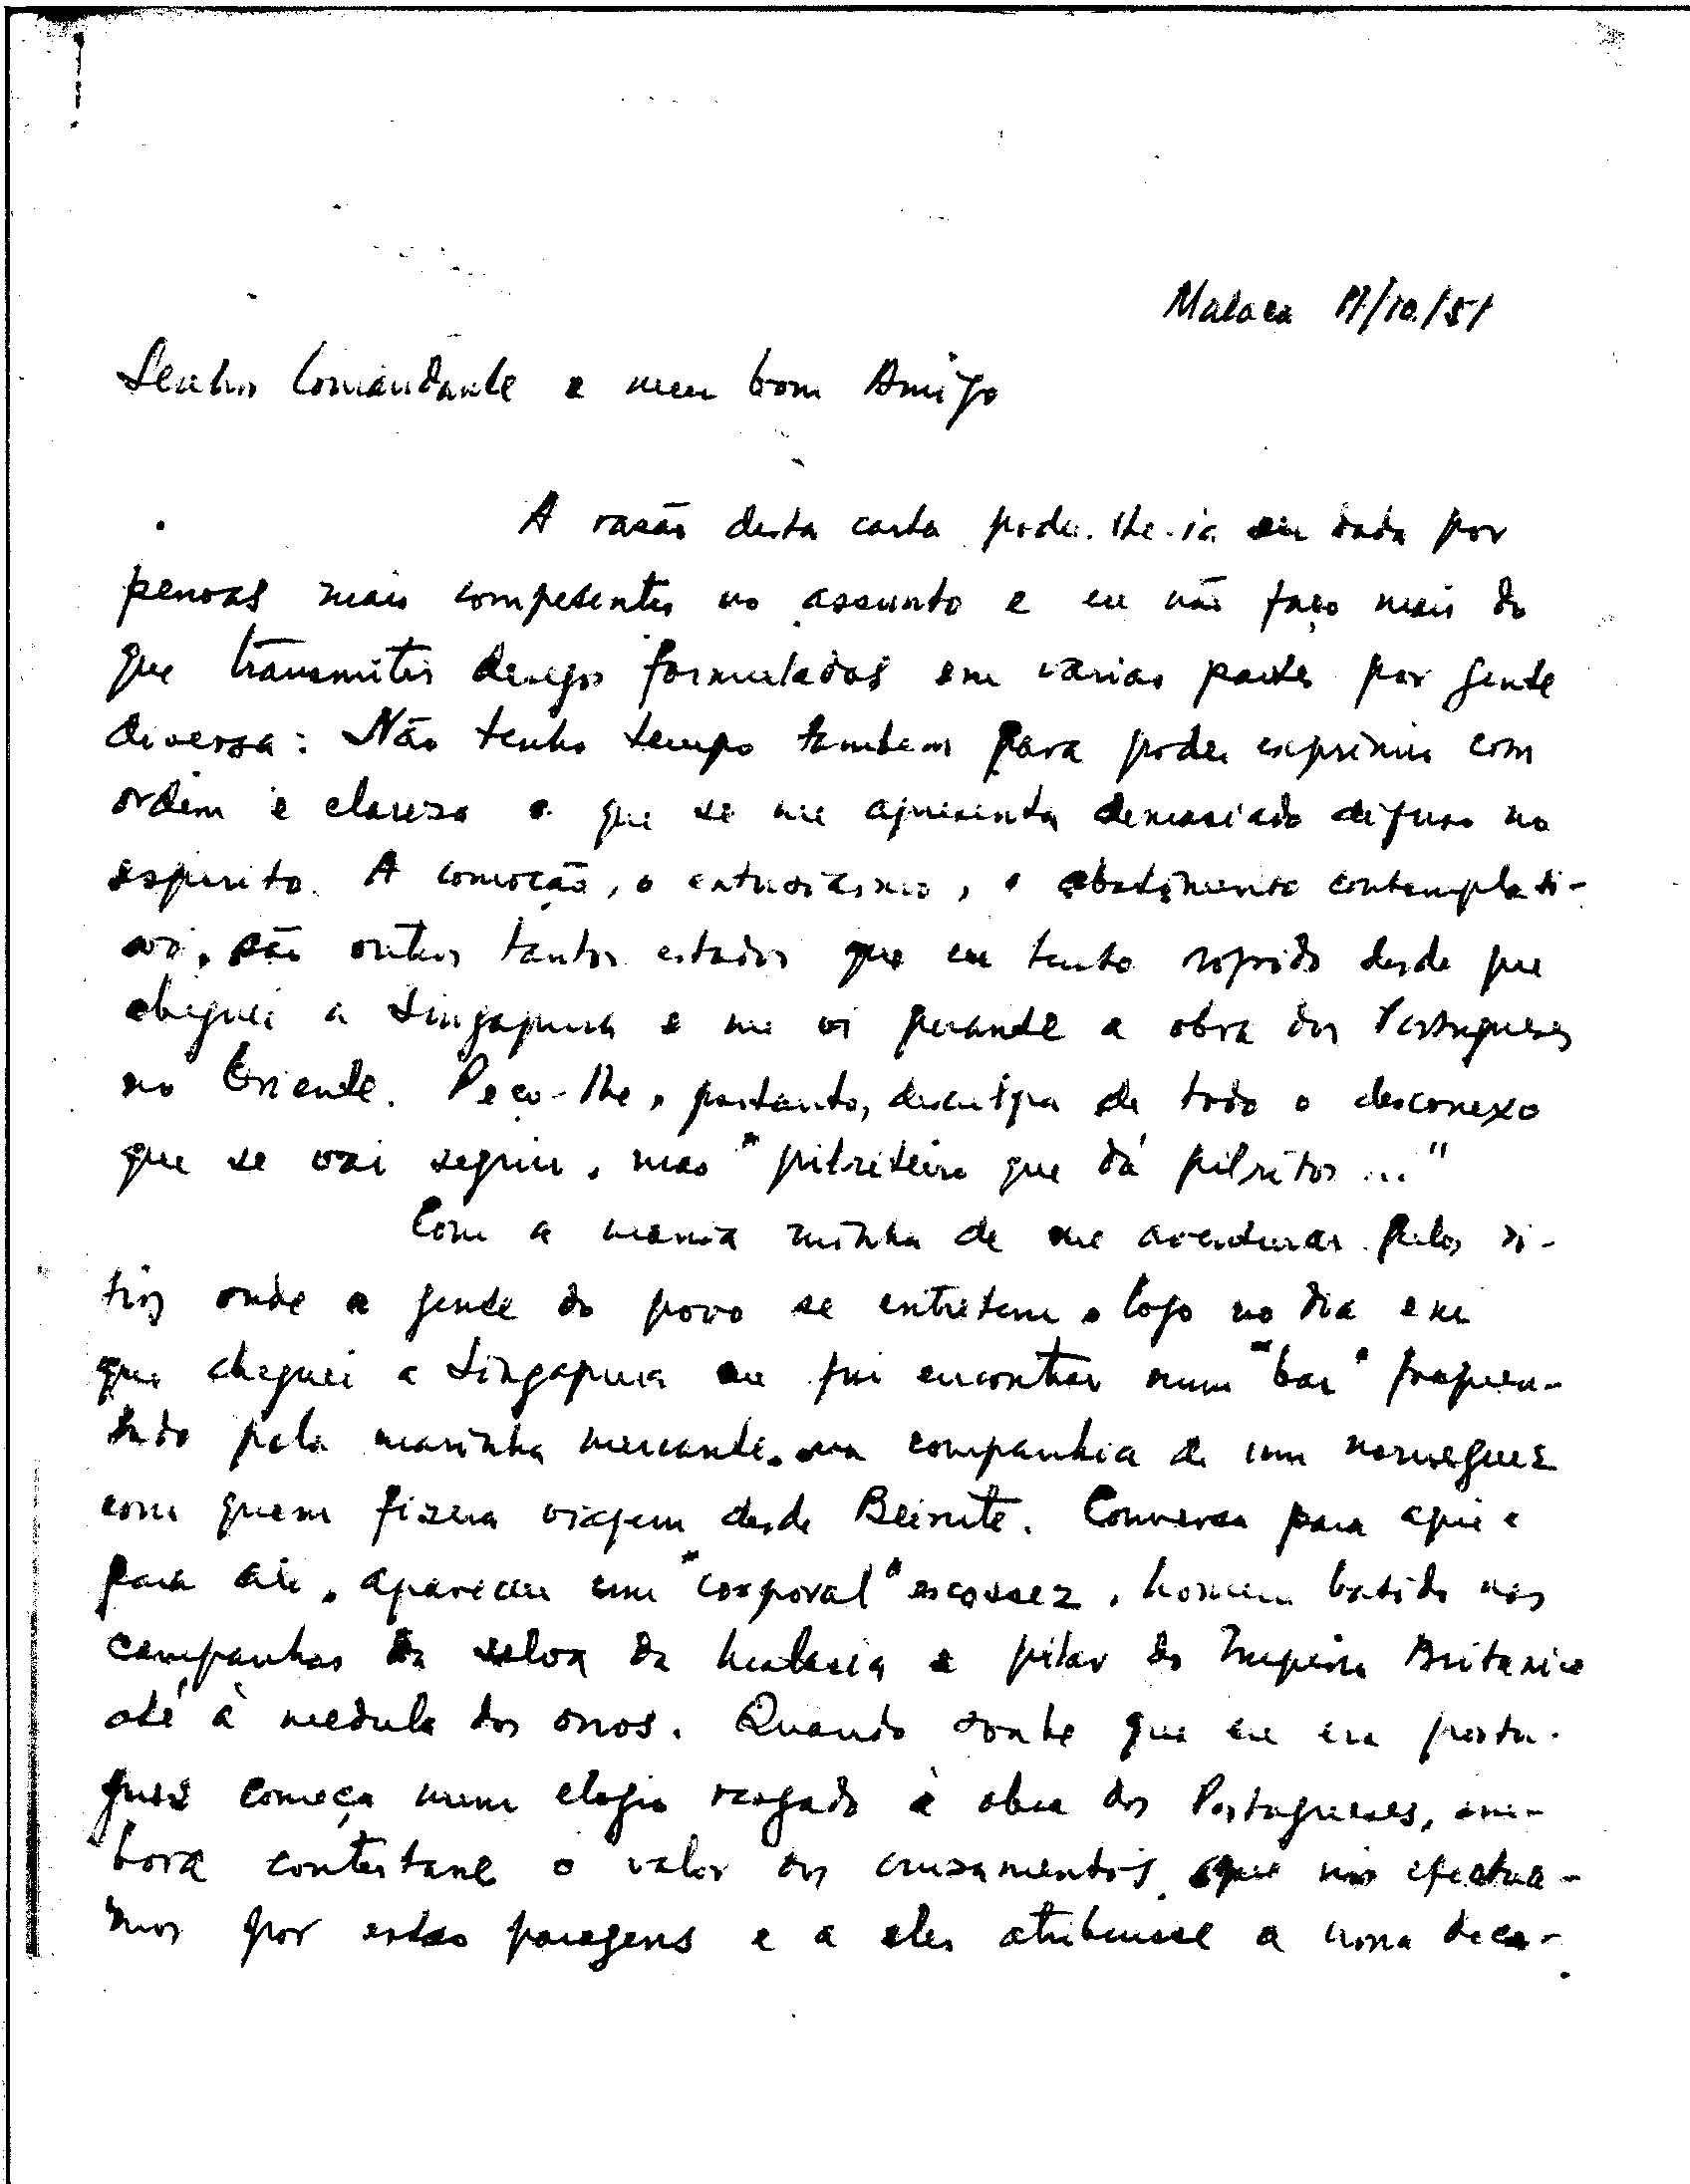 Malaca 17/10/51
Senhor Comandante e meu bom Amigo
A rasão desta carta poder-lhe-ia ser dada por
pessoas mais competentes no assunto e eu não faço mais do
que transmitir desejos formulados em varias partes por gente
diversa: Não tenho tempo tambem para poder exprimir com
ordem e clareza o que se me apresenta demasiado difuso no
espirito. A comoção, o entusiasmo, o abatimento contemplati-
vo, são outros tantos estados que eu tenho sofrido desde que
cheguei a Singapura e me vi perante a obra dos Portugueses
no Oriente. Peço-lhe, portanto, desculpa de todo o desconexo
que se vai seguir, mas "pilriteiro que dá pilritos ..."
Com a mania minha de me aventurar pelos si-
tios onde a gente do povo se entretem, logo no dia em
que cheguei a Singapura me fui encontrar num "bar" frequen-
tado pela marinha mercante, na companhia de um noruegues
com quem fizera viagem desde Beirute. Conversa para aqui e
para ali, apareceu um "corporal" escossez, homem batido nas
campanhas da selva da Malasia e pilar do Imperio Britanico
até à medula dos ossos. Quando soube que eu era portu-
guês começa num elogio rasgado à obra dos Portugueses, em-
bora contestasse o valor dos cruzamentos que nós efectua-
mos por estas paragens e a eles atribuisse a nossa deca-